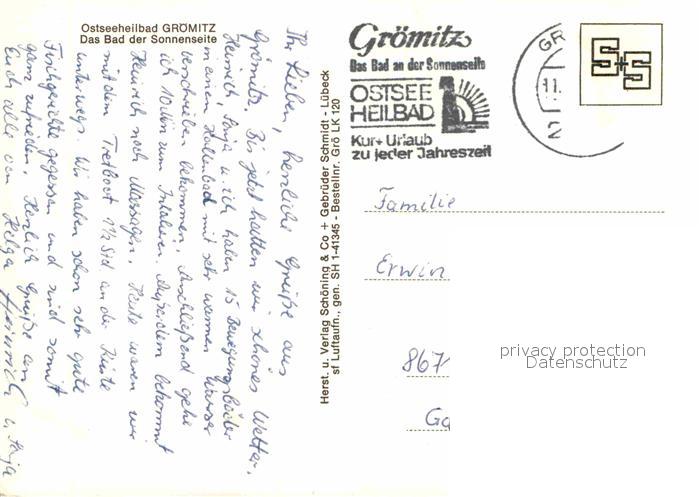 Ostseeheilbad GRÖMITZ
Das Bad der Sonnenseite
Ihr Lieben, herzliche Grüße aus
Grömitz. Bis jetzt hatten wir schönes Wetter.
Heinrich, Tanja u. ich haben 15 Bewegungsbäder
in einem Hallenbad mit sehr warmem Wasser
verschrieben bekommen. Anschließend gehe
ich 10 Min zum Inhalieren. Außerdem bekommt
Heinrich noch Massagen. Heute waren wir
mit dem Tretboot 1½ Std an der Küste
unterwegs. Wir haben schon sehr gute
Fischgerichte gegessen und sind somit
ganz zufrieden. Herzliche Grüße an
Euch alle von Helga Heinrich u. Tanja
Herst. u. Verlag Schöning & Co + Gebrüder Schmidt - Lübeck
sf Luftaufn., gen. SH 1-41345 - Bestellnr. Grö LK 120
Grömitz
Das Bad an der Sonnenseite
OSTSEE
HEILBAD
Kur + Urlaub
zu jeder Jahreszeit
GR
11.
2
S+S
Familie
Erwin
867
Ga
privacy protection
Datenschutz